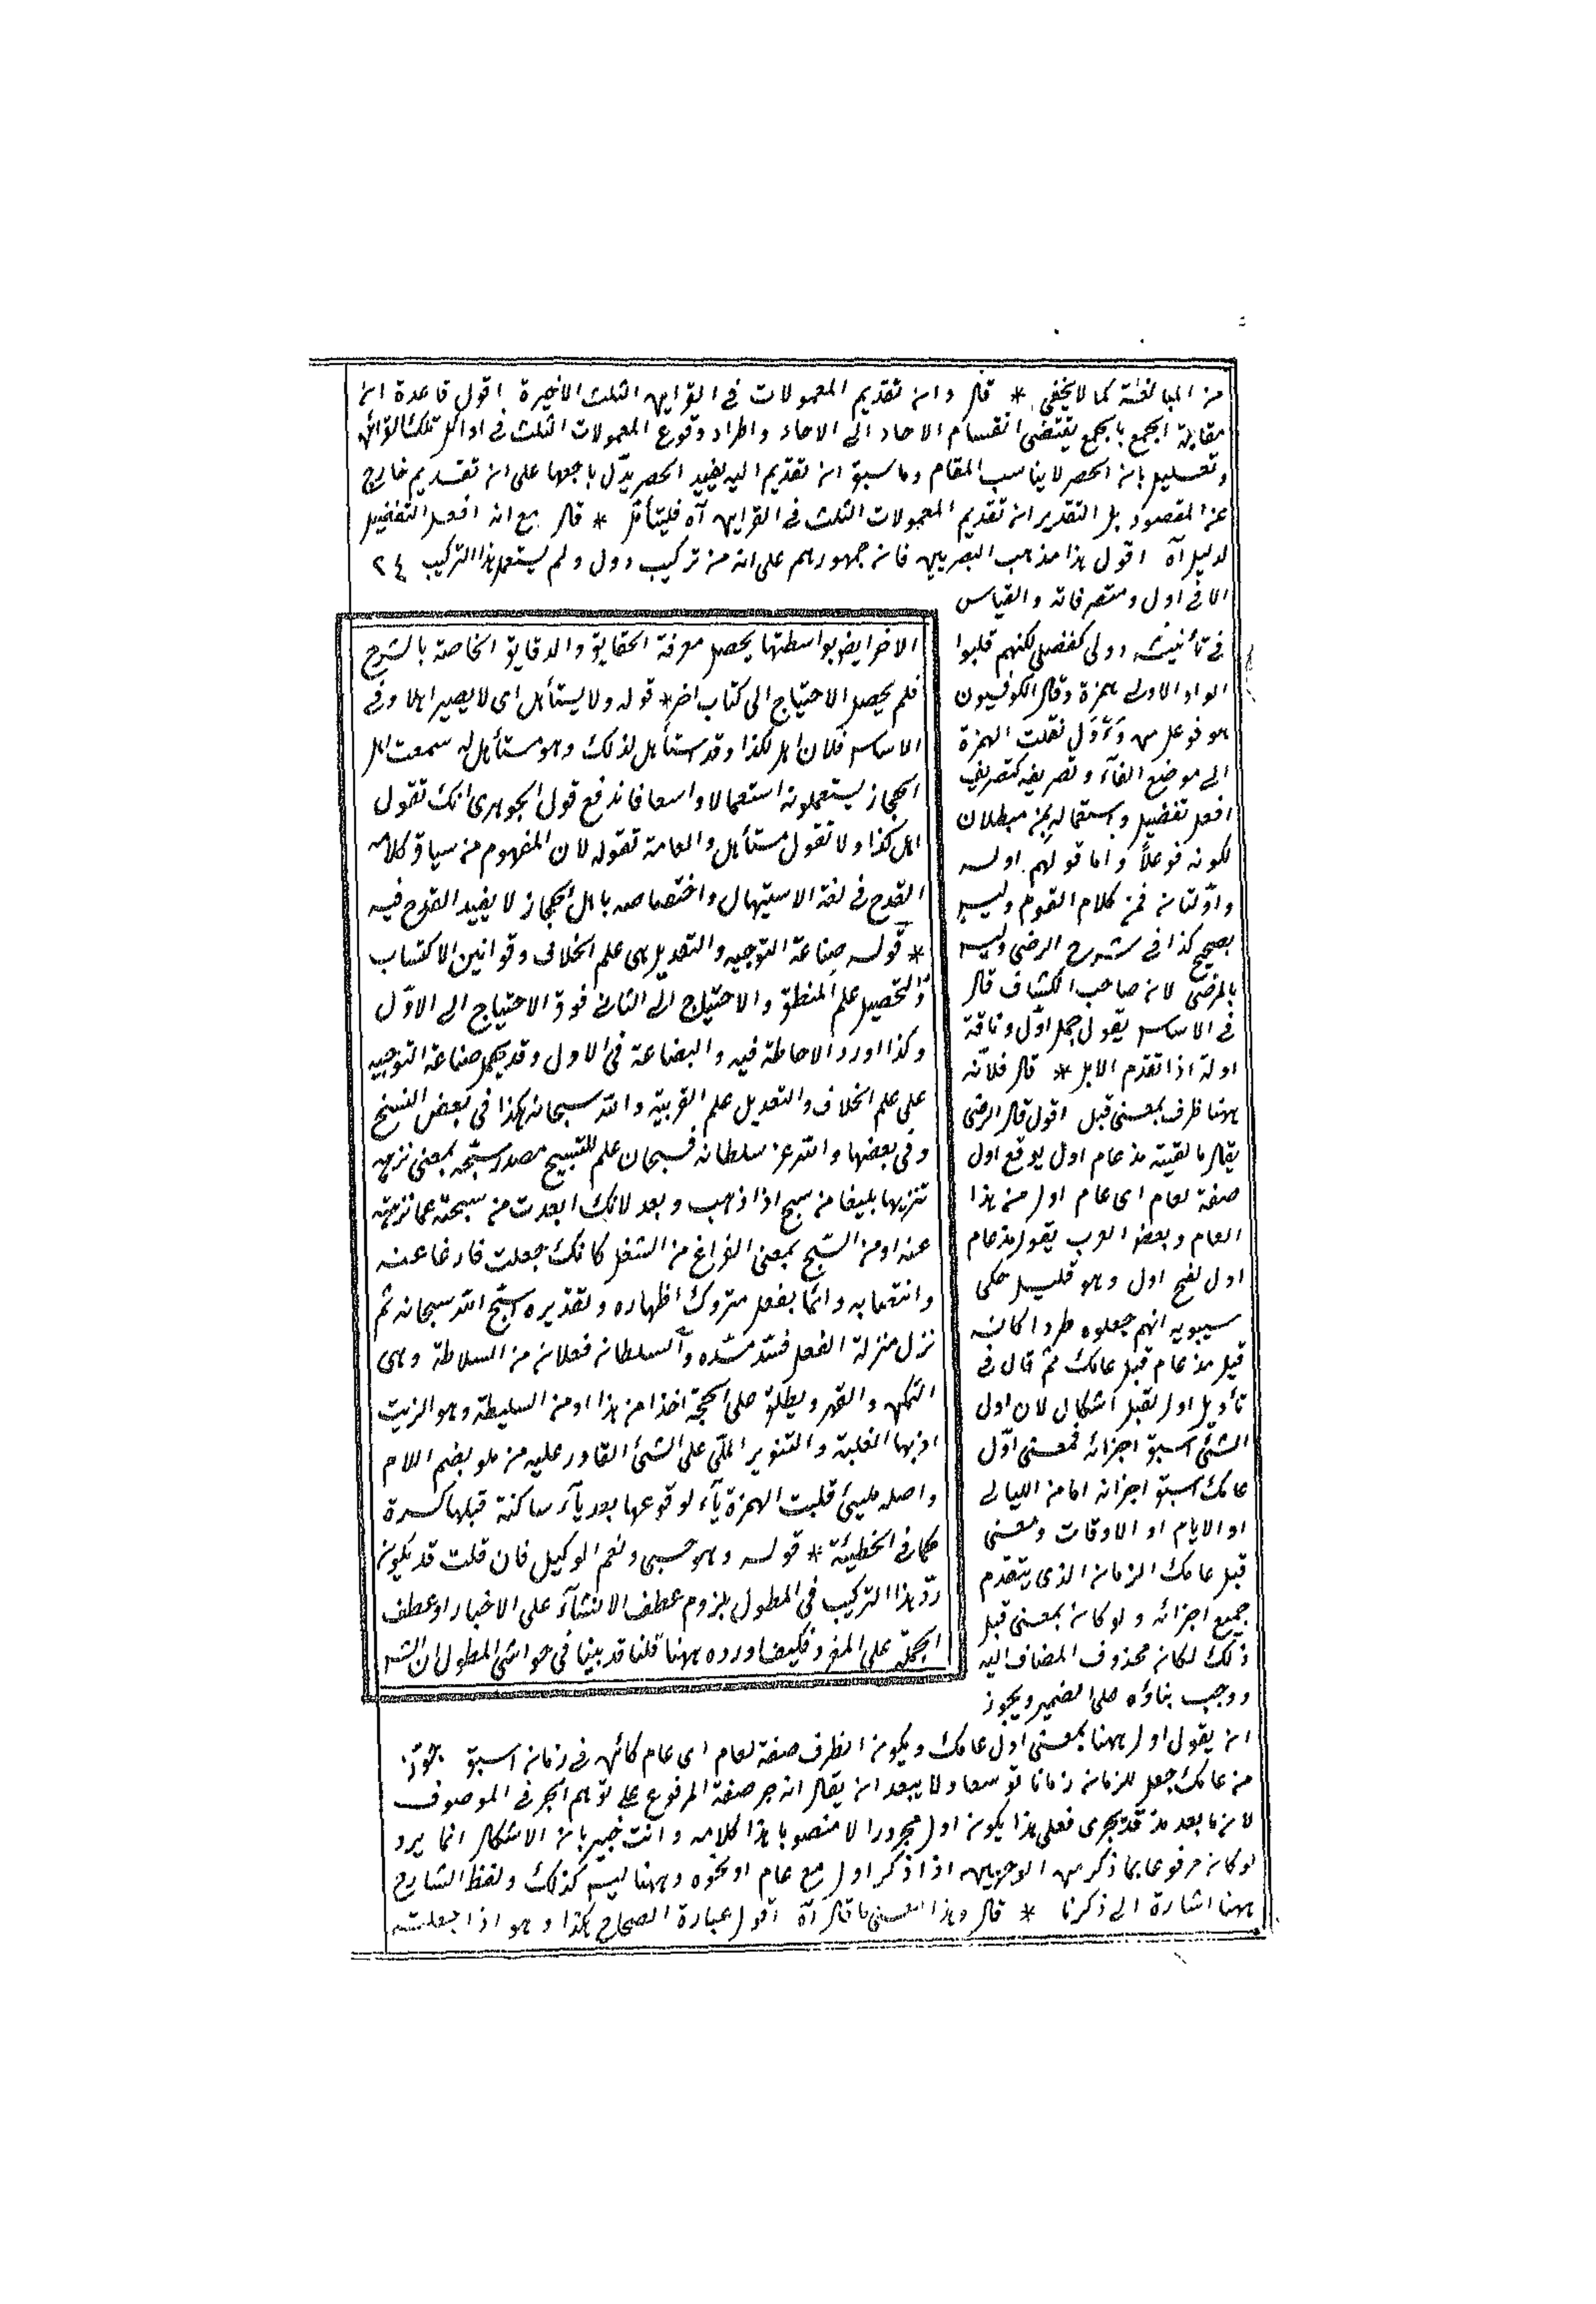 من المبالغة كما لا يخفى * قال وان تقديم المعمولات فى القراين الثلث الاخيرة اقول قاعدة ان
مقابلة الجمع بالجمع يقتضى انقسام الاحاد الى الاحاد واطراد وقوع المعمولات الثلث فى اوائل تلك القرائن
وتعليل بان الحصر لا يناسب المقام وما سبق ان تقديم اليه يفيد الحصر يدل باجمعها على ان تقديم خارج
عن المقصود بل التقدير ان تقديم المعمولات الثلث فى القراين آه فليتأمل * قال مع انه افعل التفضيل
لدليل آه اقول هذا مذهب البصريين فان جمهورهم على انه من تركيب وول ولم يستعمل هذا التركيب ٢٤
الا فى اول ومتصرفاته والقياس
فى تأنيثه وولى كفضلى لكنهم قلبوا
الواو الاولى همزة وقال الكوفييون
هو فوعل من وَءَوَل نقلت الهمزة
الى موضع الفآء وتصريفه كتصريف
افعل تفضيل واستعماله بمن مبطلان
لكونه فوعلاً واما قولهم اوله
واوّلتان فمن كلام العوام وليس
بصحيح كذا فى شرح الرضى وليس
بالمرضى لان صاحب الكشاف قال
فى الاساس يقول جمل اوّل وناقة
اولة اذا تقدم الابل * قال فلانّه
ههنا ظرف بمعنى قبل اقول قال الرضى
يقال ما لقيته مذ عام اول برفع اول
صفة لعام اى عام اول من هذا
العام وبعض العرب يقول مذ عام
اول بفتح اول وهو قليل حكى
سيبويه انهم جعلوه ظرفا كانه
قيل مذ عام قبل عامك ثم قال فى
تأويل اول بقبل اشكال لان اول
الشئ اسبق اجزائه فمعنى اوّل
عامك اسبق اجزائه اما من الليالى
او الايام او الاوقات ومعنى
قبل عامك الزمان الذى يتقدم
جميع اجزائه ولو كان بمعنى قبل
ذلك لكان محذوف المضاف اليه
ووجب بناؤه على الضم ويجوز
ان يقول اول ههنا بمعنى اول عامك ويكون الظرف صفة لعام اى عام كائن فى زمان اسبق
من عامك جعل للزمان زمانا توسعا ولا يبعد ان يقال انه جر صفة المرفوع على توهم الجر فى الموصوف
لان ما بعد مذ قد يجرى فعلى هذا يكون اول مجرورا لا منصوبا هذا كلامه وانت خبير بان الاشكال انما يرد
لو كان مرفوعا بما ذكر من الوجهين اذا ذكر اول مع عام او نحوه وههنا ليس كذلك ولفظ الشارح
ههنا اشارة الى ذكرنا * قال وهذا المعنى ما قال آه اقول عبارة الصحاح هكذا وهو اذا جعلته
الاخر ايض بواسطتها يحصل معرفة الحقايق والدقايق الخاصة بالشرح
فلم يحصل الاحتياج الى كتاب اخر * قوله ولا يستأهل اى لا يصير اهلا وفى
الاساس فلان اهل لكذا وقد استأهل لذلك وهو مستأهل له سمعت اهل
الحجاز يستعملونه استعمالا واسعا فاندفع قول الجوهرى انك تقول
اهل كذا ولا تقول مستأهل والعامة تقوله لان المفهوم من سياق كلامه
القدح فى لغة الاستيهال واختصاصه باهل الحجاز لا يفيد القدح فيه
* قوله صناعة التوجيه والتعديل هى علم الخلاف وقوانين الاكتساب
والتحصيل علم المنطق والاحتياج الى الثانى فوق الاحتياج الى الاوّل
وكذا اورد الاحاطة فيه والبضاعة فى الاول وقد يحمل صناعة التوجيه
على علم الخلاف والتعديل علم العربية والله سبحانه هكذا فى بعض النسخ
وفى بعضها والله عز سلطانه فسبحان علم للتسبيح مصدر سبّحه بمعنى نزهه
تنزيها بليغا من سبح اذا ذهب وبعد لانك ابعدت من سبحته عما نزهته
عنه او من السّبح بمعنى الفراغ من الشغل كانك جعلت فارغا عنه
وانتصابه دائما بفعل متروك اظهاره وتقديره اسبّح الله سبحانه ثم
نزل منزلة الفعل فسد مسّده والسلطان فعلان من السلاطة وهى
التمكن والقهر ويطلق على الحجة اخذا من هذا او من السليطة وهو الزيت
اذ بها الغلبة والتنوير الملّى على الشئ القادر عليه من ملو بضم اللام
واصله ملييئ قلبت الهمزة يآء لوقوعها بعد يآء ساكنة قبلها كسرة
كما فى الخطيئة * قوله وهو حسبى ونعم الوكيل فان قلت قد يكون
ردّ هذا التركيب فى المطول بلزوم عطف الانشآء على الاخبار او عطف
الجملة على المفرد فكيف اورده ههنا قلنا قد بينا فى حواشى المطول ان الشه